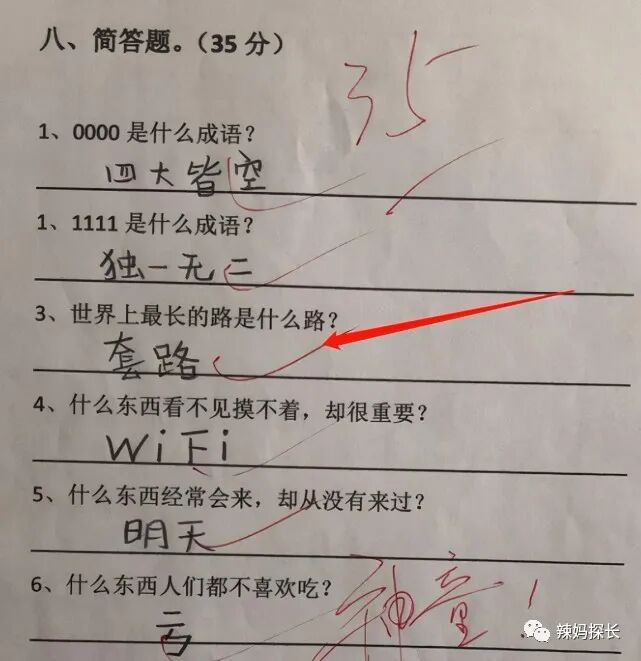 八、简答题。（35 分）
35
1、0000 是什么成语？
四大皆空
1、1111 是什么成语？
独一无二
3、世界上最长的路是什么路？
套路
4、什么东西看不见摸不着，却很重要？
WiFi
5、什么东西经常会来，却从没有来过？
明天
6、什么东西人们都不喜欢吃？
亏
神童！
辣妈探长